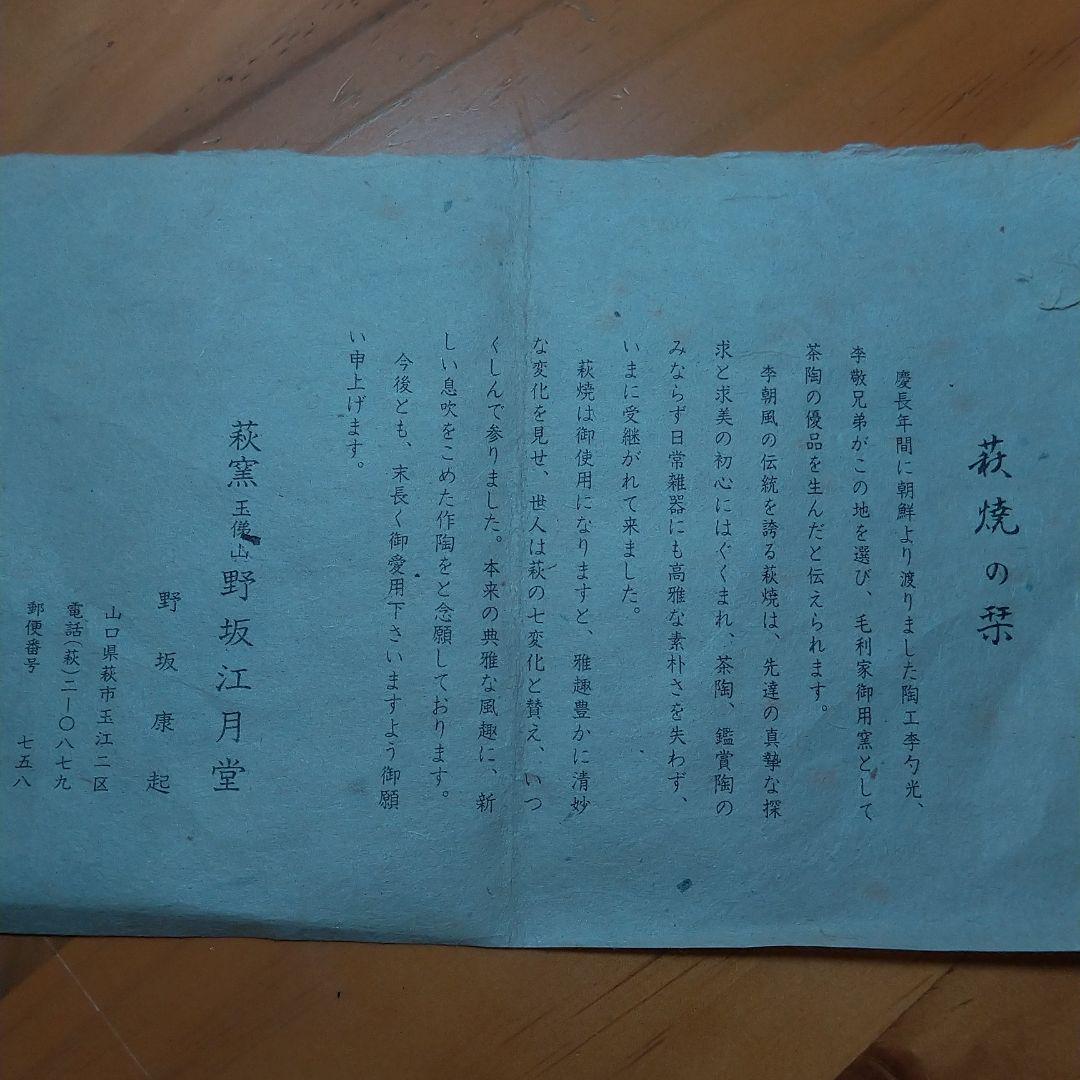 萩焼の栞
慶長年間に朝鮮より渡りました陶工李勺光、
李敬兄弟がこの地を選び、毛利家御用窯として
茶陶の優品を生んだと伝えられます。
李朝風の伝統を誇る萩焼は、先達の真摯な探
求と求美の初心にはぐくまれ、茶陶、鑑賞陶の
みならず日常雑器にも高雅な素朴さを失わず、
いまに受継がれて来ました。
萩焼は御使用になりますと、雅趣豊かに清妙
な変化を見せ、世人は萩の七変化と賛え、いつ
くしんで参りました。本来の典雅な風趣に、新
しい息吹をこめた作陶をと念願しております。
今後とも、末長く御愛用下さいますよう御願
い申上げます。
萩窯 玉 山 野坂江月堂
野坂康起
山口県萩市玉江二区
電話(萩)二―〇八七九
郵便番号 七五八